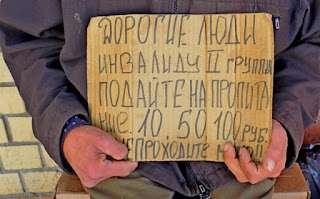 ДОРОГИЕ ЛЮДИ
ИНВАЛИДУ II группы
ПОДАЙТЕ НА ПРОПИТА
НИЕ. 10. 50. 100 РУБ.
НЕПРОХОДИТЕ